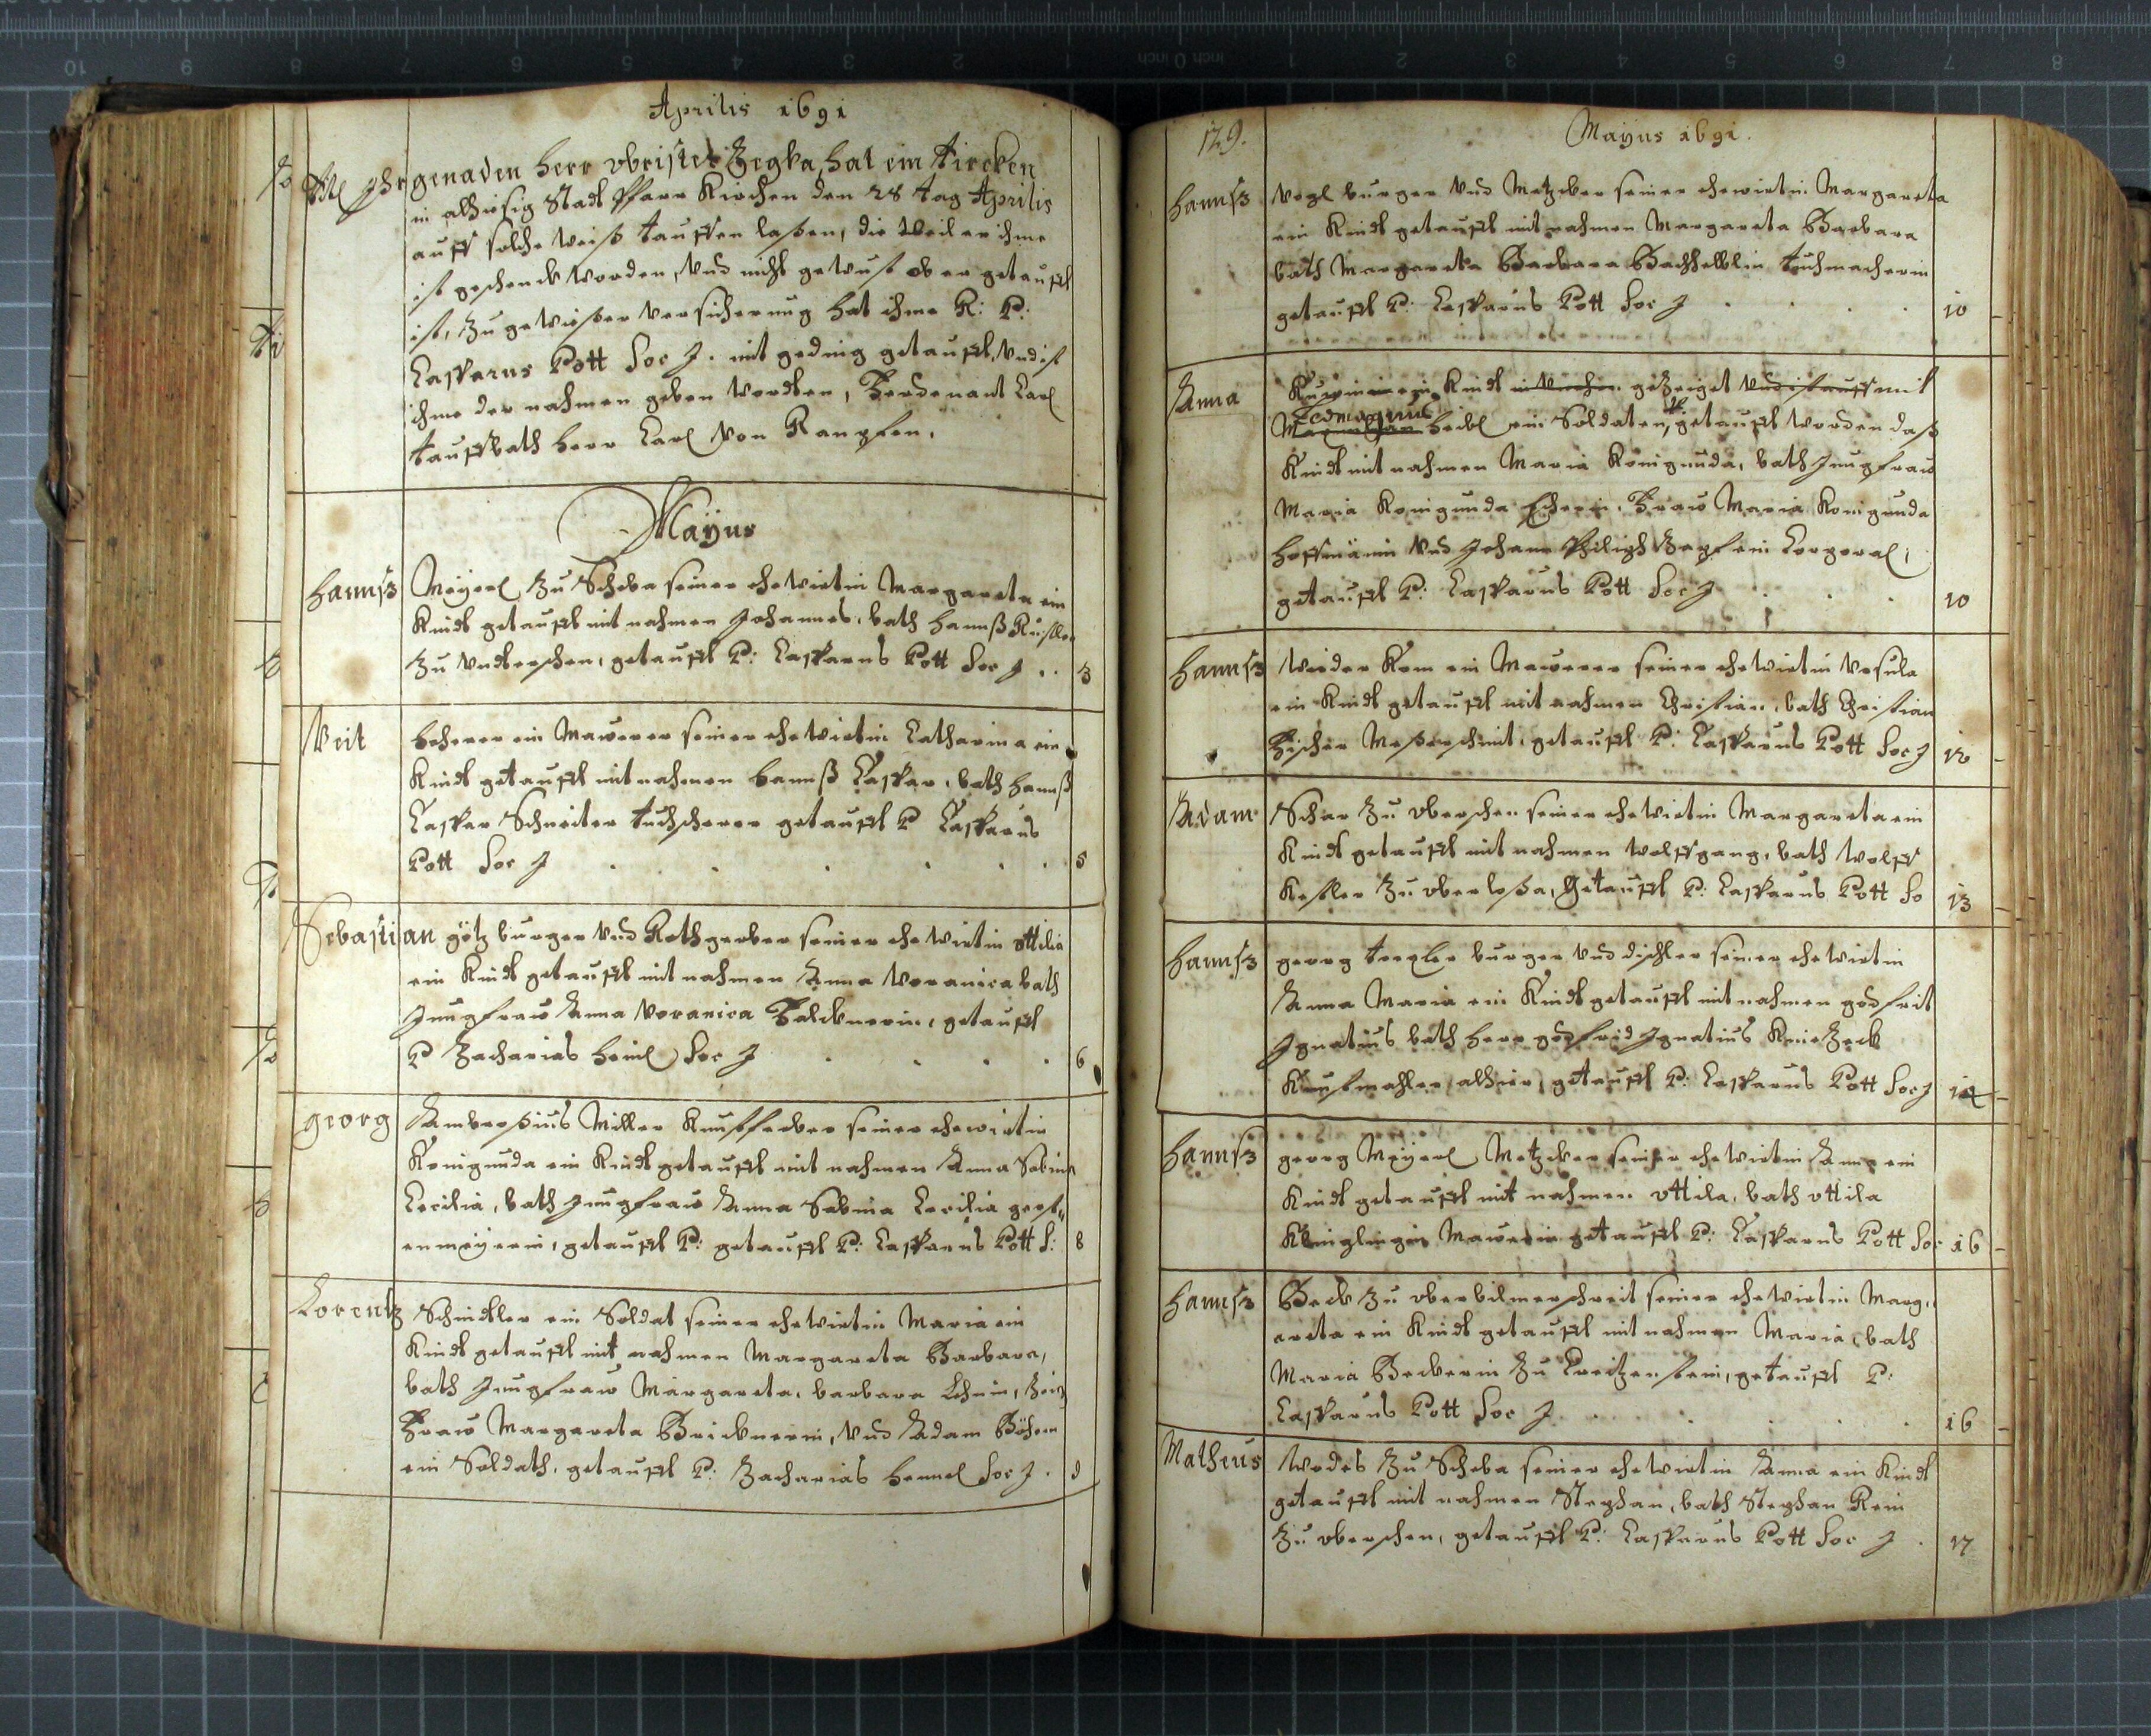 Aprilis 1691
Ihr genaden herr obrister Zegka, hat ein Tircken
in alhisig Stadt Pfarr Kirchen den 28 tag Aprilis
auff solche weiß tauffen laßen, die weil er ihme
ist geschenck worden, vnd nicht gewust ob er getaufft
ist, zu gewießer versicherung hat ihme R: P:
Casparus Pott Soc J. mit geding getaufft, vnd ist
ihme der nahmen geben wordten, Ferdenant Carl
tauffbath herr Carl von
Mayus
Hannß Meyerl zu Scheba seiner ehewirtin Margareta ein
Kindt getaufft mit nahmen Johannes, bath Hannß
zu getaufft P: Casparus Pott Soc J .. 3
Veit ein Mawerer seiner ehewirtin Catharina ein
Kindt getaufft mit nahmen hannß Caspar, bath hannß
Caspar Schneiter tuchscherer getaufft P Casparus
Pott Soc J 5
Sebastian götz burger vnd Rothgerber seiner ehewirtin ottilia
ein Kindt getaufft mit nahmen Anna Veranica bath
Jungfraw Anna Veranica Falcknerin, getaufft
P Zacharias Heinl Soc J 6
georg Ambrosius Miller seiner ehewirtin
Konigunda ein Kindt getaufft mit nahmen Anna Sabina
Cecilia, bath Jungfraw Anna Sabina Cecilia
getaufft P: getaufft P: Casparus Pott S: 8
Lorentz Schindtler ein Soldat seiner ehewirtin Maria ein
Kindt getaufft mit nahmen Margareta Barbara,
bath Jungfraw Margareta, barbara
Fraw Margareta Bricknerin, vnd Adam Böhem
ein Soldath, getaufft P: Zacharias Hennel Soc J. 9
129.
Mayus 1691.
Hannß Vogl burger vnd Metzcker seiner ehewirtin Margareta
ein Kindt getaufft mit nahmen Margareta Barbara
bath Margareta Barbara tuchmacherin
getaufft P: Casparus Pott Soc J 10
Anna ein Kindt gezeiget mit
ein Soldaten, getaufft worden daß
Kindt mit nahmen Maria Konigunda, bath Jungfraw
Maria Konigunda Fraw Maria Konigunda
Hoffmänin vnd Johann Philiph ein Corporal,
getaufft P: Casparus Pott Soc J 10
Hannß wieder Kom ein Mawerer seiner ehewirtin Vrsula
ein Kindt getaufft mit nahmen Christian, bath Christian
Fischer Meßerschmit, getaufft P: Casparus Pott Soc J 12
Adam zu oberschen seiner ehewirtin Margareta ein
Kindt getaufft mit nahmen wolffgang, bath wolff
Keßler zu oberloßa, Getaufft P: Casparus Pott So 13
Hannß georg burger vnd dischler seiner ehewirtin
Anna Maria ein Kindt getaufft mit nahmen godfrit
Ignatius bath herr godfrid Ignatius
alhier, getaufft P: Casparus Pott Soc J 14
Hannß georg Meyerl Metzcker seiner ehewirtin Anna ein
Kindt getaufft mit nahmen ottila, bath ottila
Mawrerin getaufft P: Casparus Pott Soc 16
Hannß Beck zu seiner ehewirtin Marg,,
areta ein Kindt getaufft mit nahmen Maria, bath
Maria Beckerin zu getaufft P:
Casparus Pott Soc J 16
Matheus zu Scheba seiner ehewirtin Anna ein Kindt
getaufft mit nahmen Stephan, bath Stephan
zu oberschen, getaufft P: Casparus Pott Soc J . 17